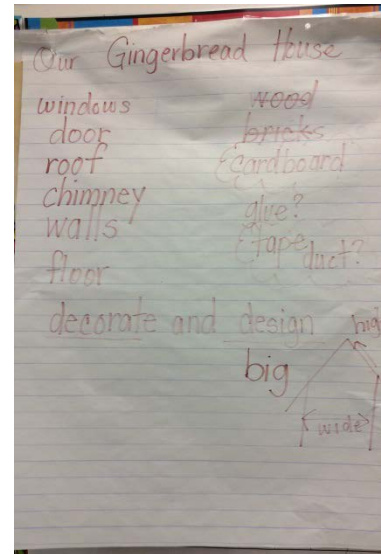 Our Gingerbread House
windows
door
roof
chimney
walls
floor
wood
bricks
cardboard
glue?
tape
duct?
decorate and design
big
high
wide